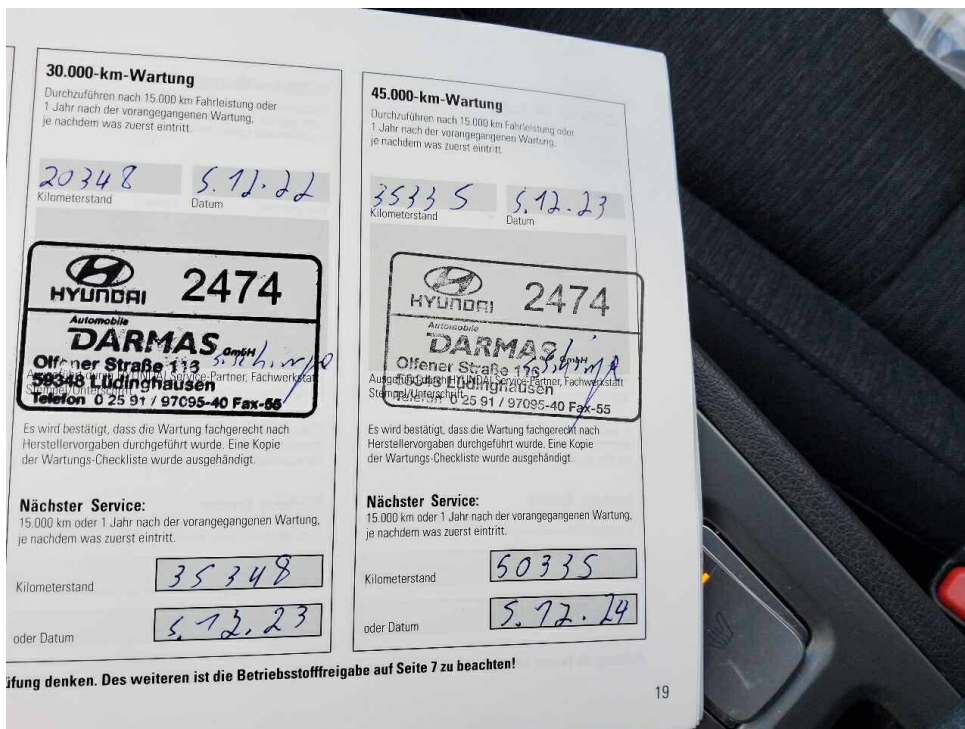 30.000-km-Wartung
Durchzuführen nach 15.000 km Fahrleistung oder
1 Jahr nach der vorangegangenen Wartung,
je nachdem was zuerst eintritt.
20348
5.12.22
Kilometerstand
Datum
HYUNDAI
2474
Automobile
DARMAS GmbH
Olfener Straße 116
59348 Lüdinghausen
Telefon 0 25 91 / 97095-40 Fax-55
Ausgeführt durch HYUNDAI Service-Partner, Fachwerkstatt
Stempel/Unterschrift
Es wird bestätigt, dass die Wartung fachgerecht nach
Herstellervorgaben durchgeführt wurde. Eine Kopie
der Wartungs-Checkliste wurde ausgehändigt.
Nächster Service:
15.000 km oder 1 Jahr nach der vorangegangenen Wartung,
je nachdem was zuerst eintritt.
Kilometerstand
35348
oder Datum
5.12.23
45.000-km-Wartung
Durchzuführen nach 15.000 km Fahrleistung oder
1 Jahr nach der vorangegangenen Wartung,
je nachdem was zuerst eintritt.
35335
5.12.23
Kilometerstand
Datum
HYUNDAI
2474
Automobile
DARMAS GmbH
Olfener Straße 116
Lüdinghausen
Telefon 0 25 91 / 97095-40 Fax-55
Ausgeführt durch HYUNDAI Service-Partner, Fachwerkstatt
Stempel/Unterschrift
Es wird bestätigt, dass die Wartung fachgerecht nach
Herstellervorgaben durchgeführt wurde. Eine Kopie
der Wartungs-Checkliste wurde ausgehändigt.
Nächster Service:
15.000 km oder 1 Jahr nach der vorangegangenen Wartung,
je nachdem was zuerst eintritt.
Kilometerstand
50335
oder Datum
5.12.24
üfung denken. Des weiteren ist die Betriebsstofffreigabe auf Seite 7 zu beachten!
19